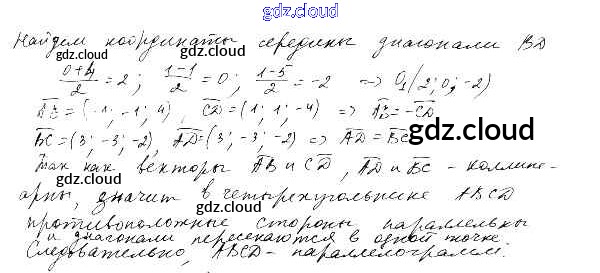 gdz.cloud
Найдем координаты середины диагонали BD
gdz.cloud gdz.cloud
(0+4)/2 = 2; (1-1)/2 = 0; (1-5)/2 = -2 => O₁(2; 0; -2)
AB = (-1; -1; 4), CD = (1; 1; -4) => AB = -CD
BC = (3; -3; -2), AD = (3; -3; -2) => AD = BC
gdz.cloud
Так как векторы AB и CD, AD и BC - коллине-
gdz.cloud gdz.cloud
арны, значит в четырехугольнике ABCD
gdz.cloud
противоположные стороны параллельны
и диагонали пересекаются в одной точке.
Следовательно, ABCD - параллелограмм.
gdz.cloud